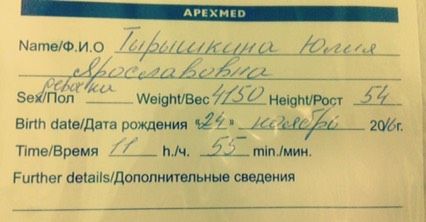 APEXMED
Name/Ф.И.О Тырышкина Юлия
Ярославовна
девочка
Sex/Пол Weight/Вес 4150 Height/Рост 54
Birth date/Дата рождения «24» ноябрь 2016г.
Time/Время 11 h./ч. 55 min./мин.
Further details/Дополнительные сведения